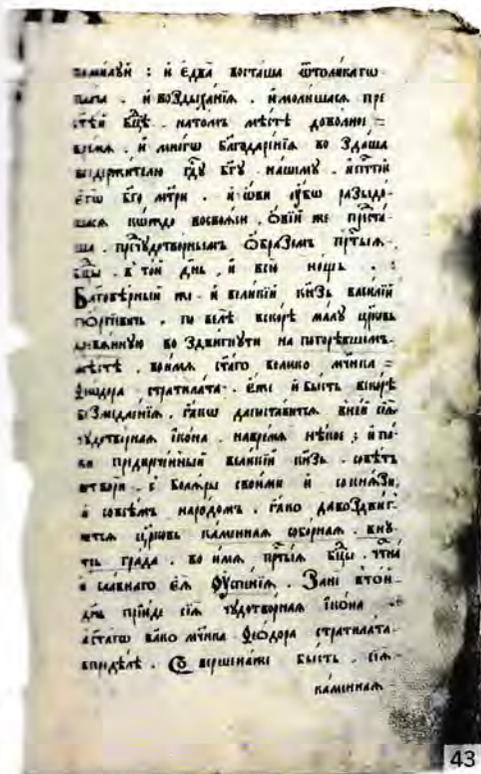 помилуй : и едва восташа ѿтоликагѡ
пла́ча . и воздыханїѧ . имолишасѧ пре
ст҃ѣй бц҃ѣ . натомъ мѣстѣ доволное =
время . и многѡ блг҃одаренїѧ во здаша
вседержителю гд҃у бг҃у нашему . и пст҃ой
егѡ бг҃о мт҃ри . и ѡви ѹбѡ разыдо-
шасѧ кꙋждо восвоѧси . Ѻвїи же преста-
ша . пред̾чудотворнымъ ѻбразомъ прст҃ыѧ .
бц҃ы . в̾ той дн҃ь . и всю нощь . :
Благовѣрный же и великїй кн҃зь василїй
гиѡргїевичь . по велѣ вскорѣ малу цр҃ковь
древѧнную во здвигнути на погорѣвшемъ .
мѣстѣ . воимѧ ст҃аго велико мч҃нка =
Ѳеѡдора стратилата . еже и бысть вскорѣ
безмедленїѧ . ꙗкѡ дапоставитсѧ вней сїѧ
чудотворнаѧ їкона . навремѧ нѣкое ; и па-
ки предиреченный великїй кн҃зь . совѣтъ
сотвори . с болѧры своими и сокнѧзи ,
и совсѣмъ народомъ . ꙗко давоздвиг-
нетсѧ цр҃ковь каменнаѧ соборнаѧ . вну-
трь града . во имѧ прст҃ыѧ бц҃ы . чтⷭ҇наг
и славнаго еѧ Ѹспенїѧ . Зане втой-
дн҃ь прїиде сїѧ чудотворнаѧ їкона
аст҃агѡ вл҃ко мч҃нка Ѳеѡдора стратилата .
впридѣлѣ . Со вершенаже бысть . сїѧ .
каменнаѧ
43